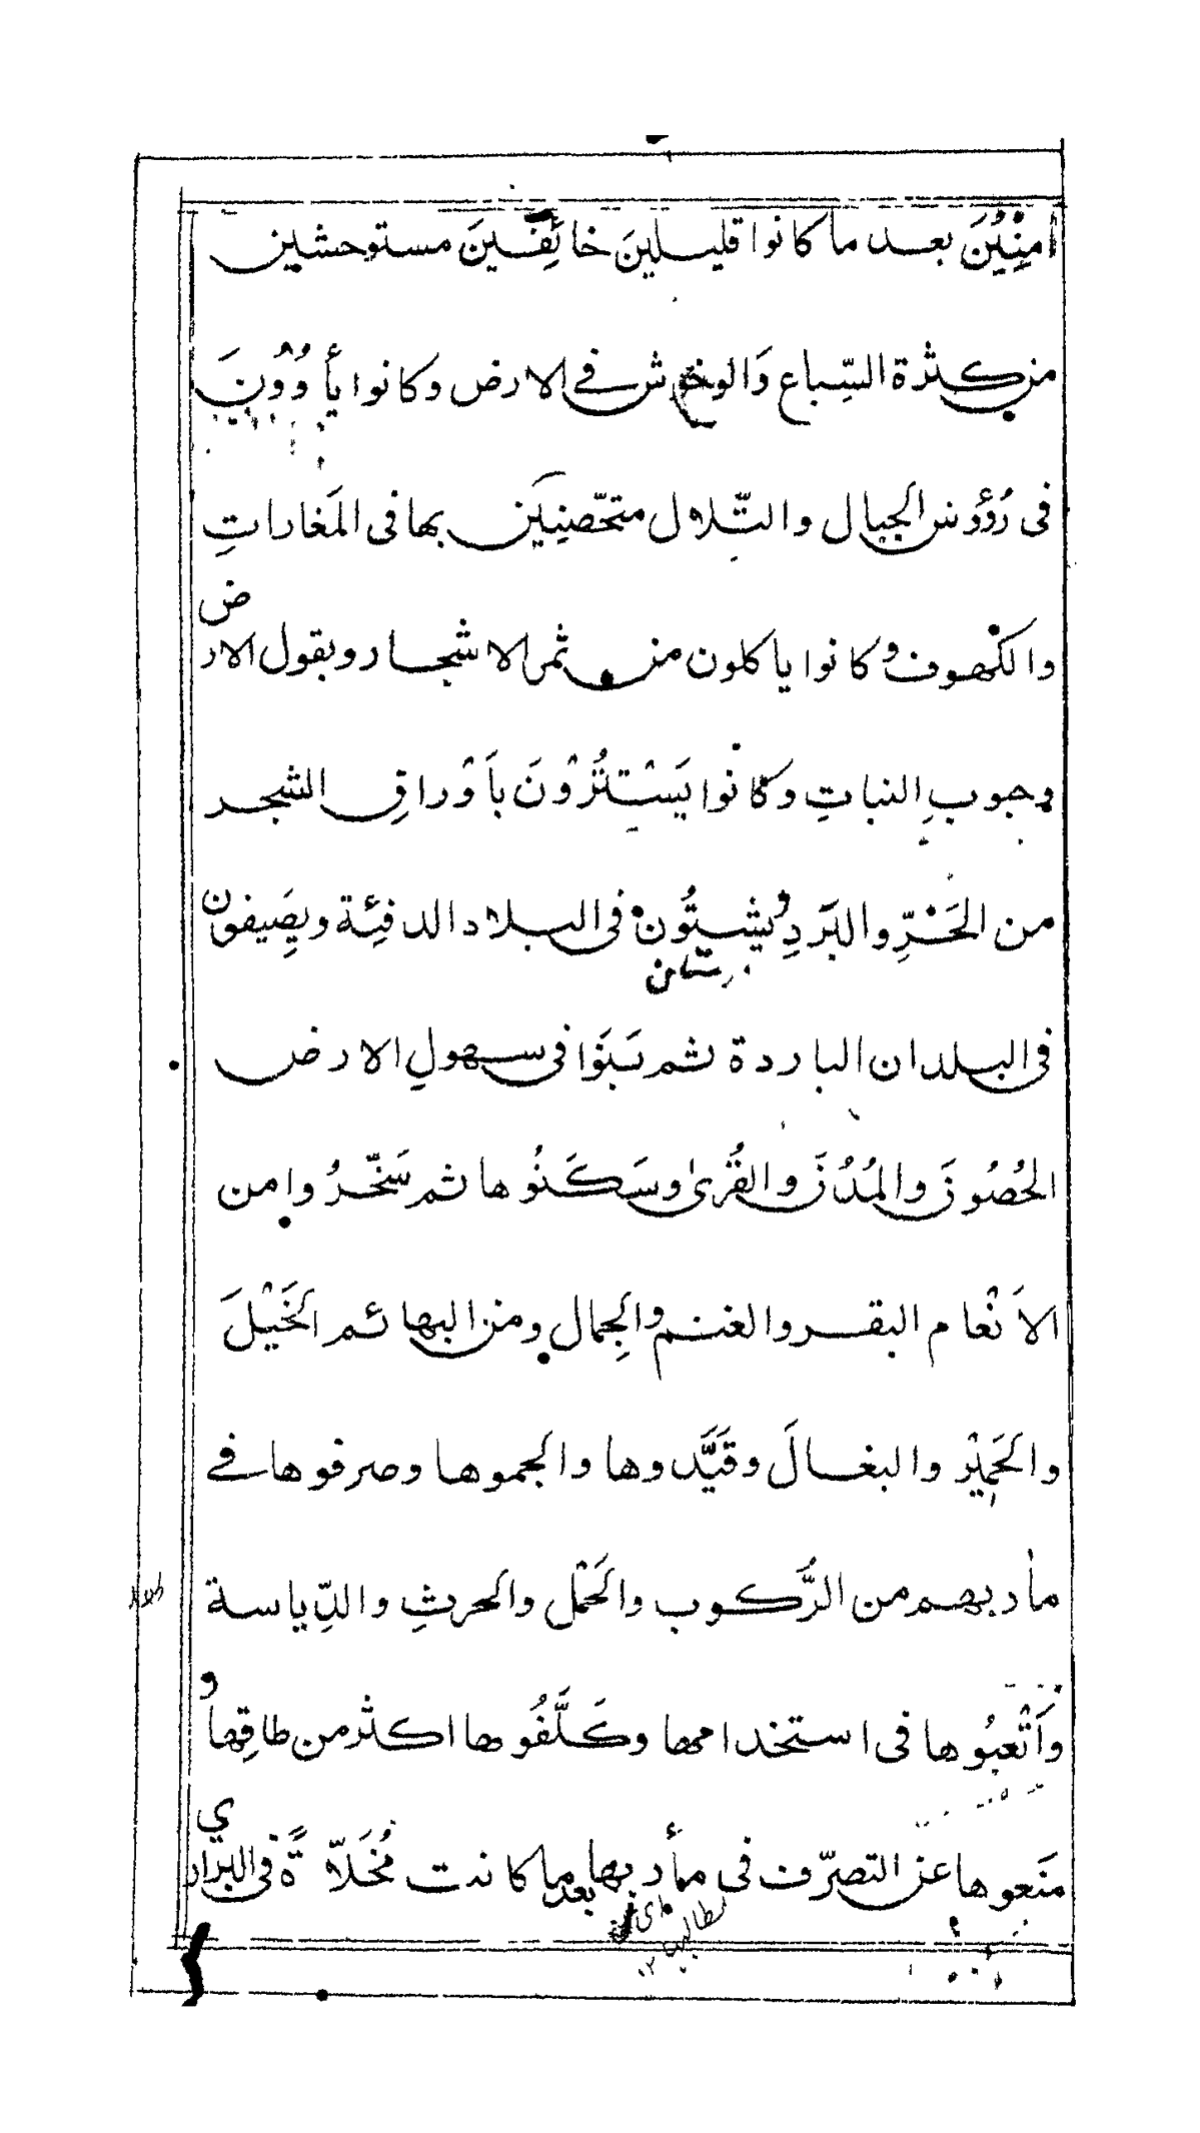 امِنِيْنَ بعد ما كانوا قليلينَ خائِفِينَ مستوحشين
من كثرة السِّباع وَالوحوش فى الارض وكانوا يأوُوُنَ
فى رُؤُوس الجبال والتّلال متحّصنِيَن بها فى المَغاراتِ
والكهوف وكانوا ياكلون من ثمر الاشجار وبقول الارض
وحبوبِ النباتِ وكانوا يَسْتتِرُوْنَ بأَوْراقِ الشجر
من الحَرِّ والبَردِ ويشِتُون فى البلاد الدفِئة ويصِيفون
فى البلدان الباردة ثم بَنَوا فى سهولِ الارض
الحُصُونَ والمُدُنَ والقُرىٰ وسَكَنُوها ثم سَخّرُوا من
الاَنْعام البقر والغنم والجِمال ومن البهائم الخَيْلَ
والحَمِيْر والبغالَ وقَيَّدوها والجموها وصرفوها فى
مأربهم من الرُّكوب والحَمْل والحرثِ والدِّياسة
وَاَتْعبُوها فى استخدامها وكَلَّفُوها اكثر من طاقِها و
منَعوها عن التصرّف فى مأربها بعد ما كانت مُخَلاّةً فى البرارى